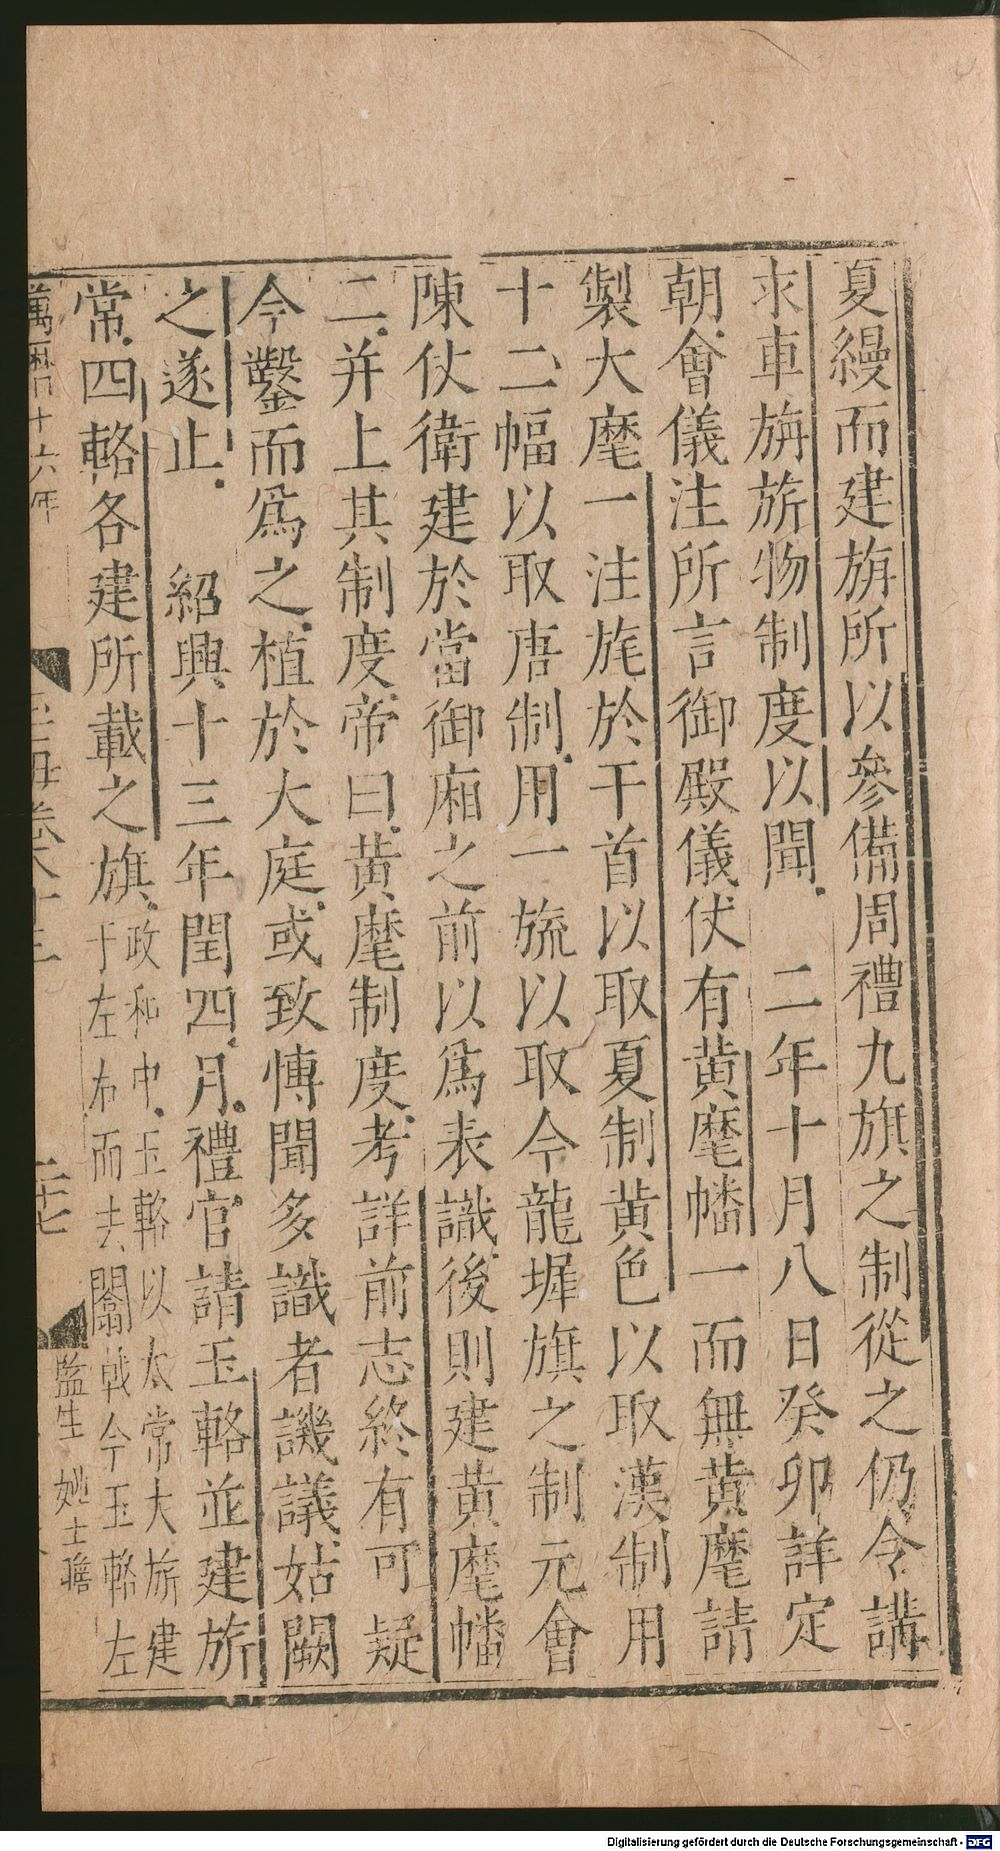 夏縵而建旃所以參備周禮九旗之制從之仍令講
求車旃旂物制度以聞 二年十月八日癸卯詳定
朝會儀注所言御殿儀仗有黄麾幡一而無黄麾請
製大麾一注旄於干首以取夏制黄色以取漢制用
十二幅以取唐制用一旒以取今龍墀旗之制元會
陳仗衛建於當御廂之前以為表識後則建黄麾幡
二并上其制度帝曰黄麾制度考詳前志終有可疑
今鑿而為之植於大庭或致博聞多識者譏議姑闕
之遂止 紹興十三年閏四月禮官請玉輅並建旂
常四輅各建所載之旗政和中玉輅以太常大旂建
于左右而去闟戟今玉輅左
萬曆十六年
玉海卷八十三
二十七
監生 姚士瞻
Digitalisierung gefördert durch die Deutsche Forschungsgemeinschaft - DFG